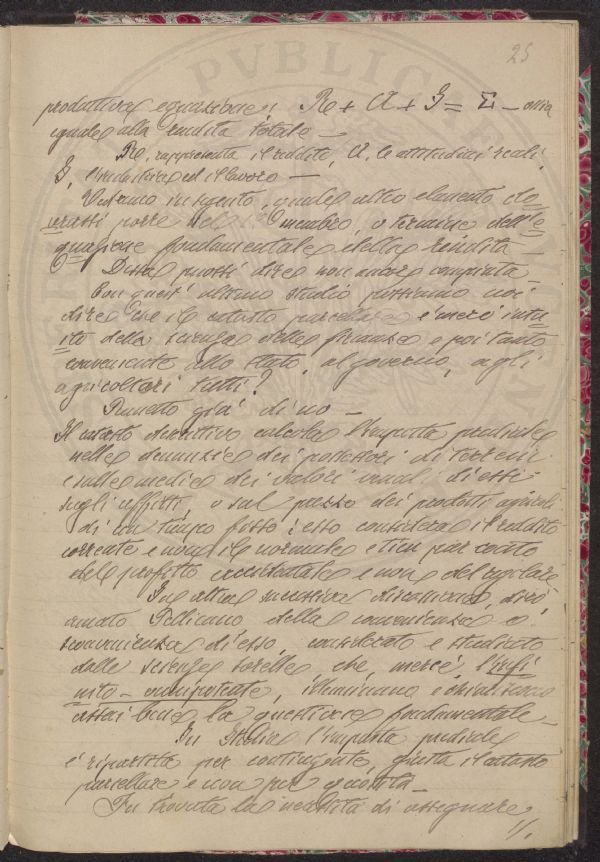 25
produttiva equazione: Re + A + I = Σ — ossia
eguale alla rendita totale —
Re, rappresenta il reddito, A, le attitudini reali,
I, l'industria ed il lavoro —
Vedremo in seguito, quale altro elemento do-
vrassi porre nel membro, o termine dell'e-
quazione fondamentale della rendita —
Dessa puossi dire non ancora compiuta —
Con quest' ultimo studio possiamo noi
dire che il catasto parcellare è mero
della scienza delle finanze e pertanto
conveniente allo stato, al governo, agli
agricoltori tutti?
già di no —
Il catasto descrittivo calcola l'imposta prediale
nelle denunzie dei possessori di terreni
e sulle medie dei valori venali di essi
sugli affitti, o sul prezzo dei prodotti agricoli
di un tempo fisso; esso considera il reddito
corrente e non il normale e tien per conto
del profitto accidentale e non del regolare
In altra successiva discorreremo,
amato Pellicano della convenienza o
sconvenienza di esso considerato e studiato
dalle scienze sorelle che, mercè, l'infi
nito — onnipotente, illuminano e
assai bene la questione fondamentale —
In Italia l'imposta prediale
è ripartita per contingente, giusta il catasto
parcellare e non per quotità —
Fu trovata la necessità di assegnare
//.